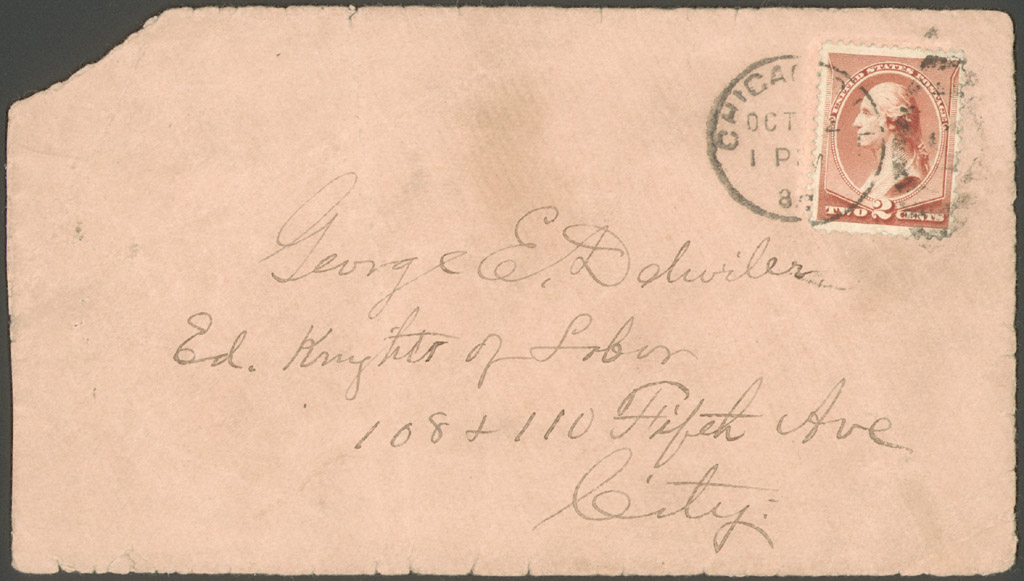 CHICAGO
OCT
1 PM
8
UNITED STATES POSTAGE
TWO 2 CENTS
George E. Ddwiler
Ed. Knights of Labor
108 & 110 Fifth Ave
City.